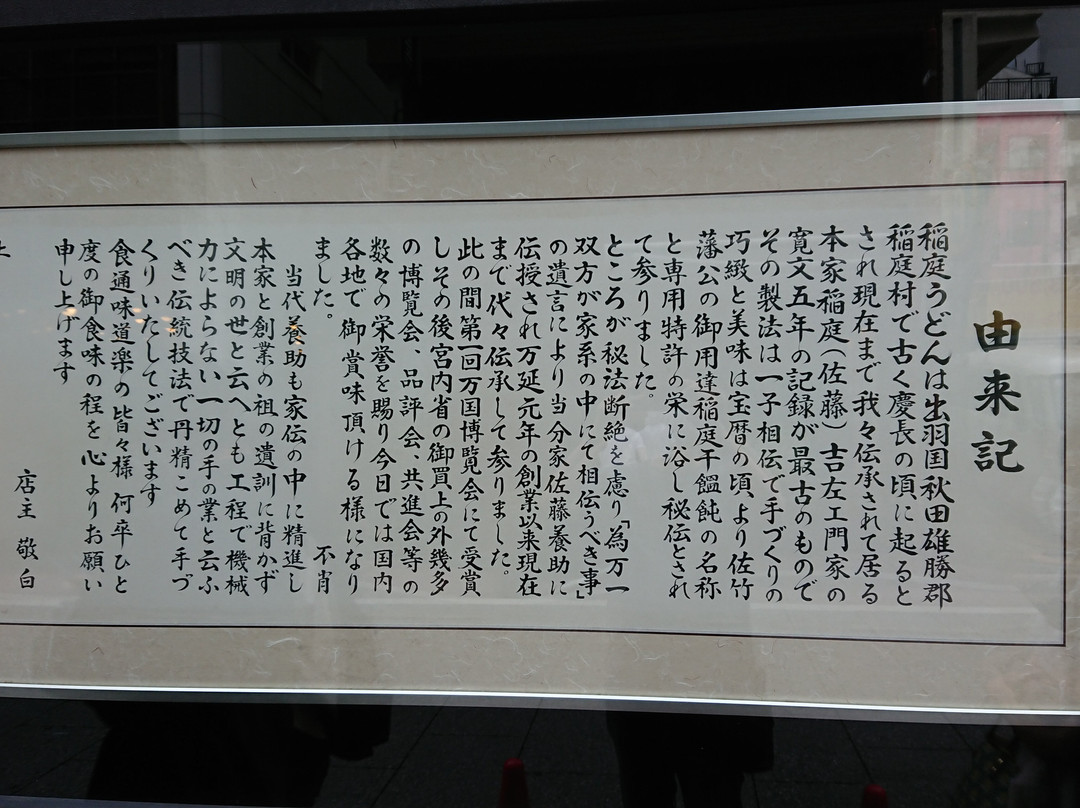 由来記
稲庭うどんは出羽国秋田雄勝郡
稲庭村で古く慶長の頃に起ると
され現在まで我々伝承されて居る
本家稲庭(佐藤)吉左エ門家の
寛文五年の記録が最古のもので
その製法は一子相伝で手づくりの
巧緻と美味は宝暦の頃より佐竹
藩公の御用達稲庭干饂飩の名称
と専用特許の栄に浴し秘伝とされ
て参りました。
ところが秘法断絶を慮り「為万一
双方が家系の中にて相伝うべき事」
の遺言により当分家佐藤養助に
伝授され万延元年の創業以来現在
まで代々伝承して参りました。
此の間第一回万国博覧会にて受賞
しその後宮内省の御買上の外幾多
の博覧会、品評会、共進会等の
数々の栄誉を賜り今日では国内
各地で御賞味頂ける様になり
ました。
不肖
当代養助も家伝の中に精進し
本家と創業の祖の遺訓に背かず
文明の世と云へとも工程で機械
力によらない一切の手の業と云ふ
べき伝統技法で丹精こめて手づ
くりいたしてございます
食通味道楽の皆々様何卒ひと
度の御食味の程を心よりお願い
申し上げます
店主 敬白